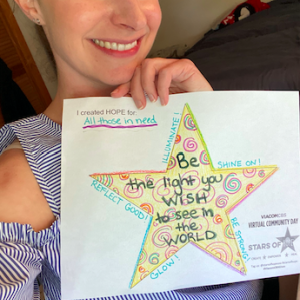 I created HOPE for:
All those in need
ILLUMINATE!
SHINE ON!
REFLECT GOOD!
BE STRONG!
GLOW!
Be
the light you
WISH
to see in
the
WORLD
VIACOMCBS
VIRTUAL COMMUNITY DAY
STARS OF